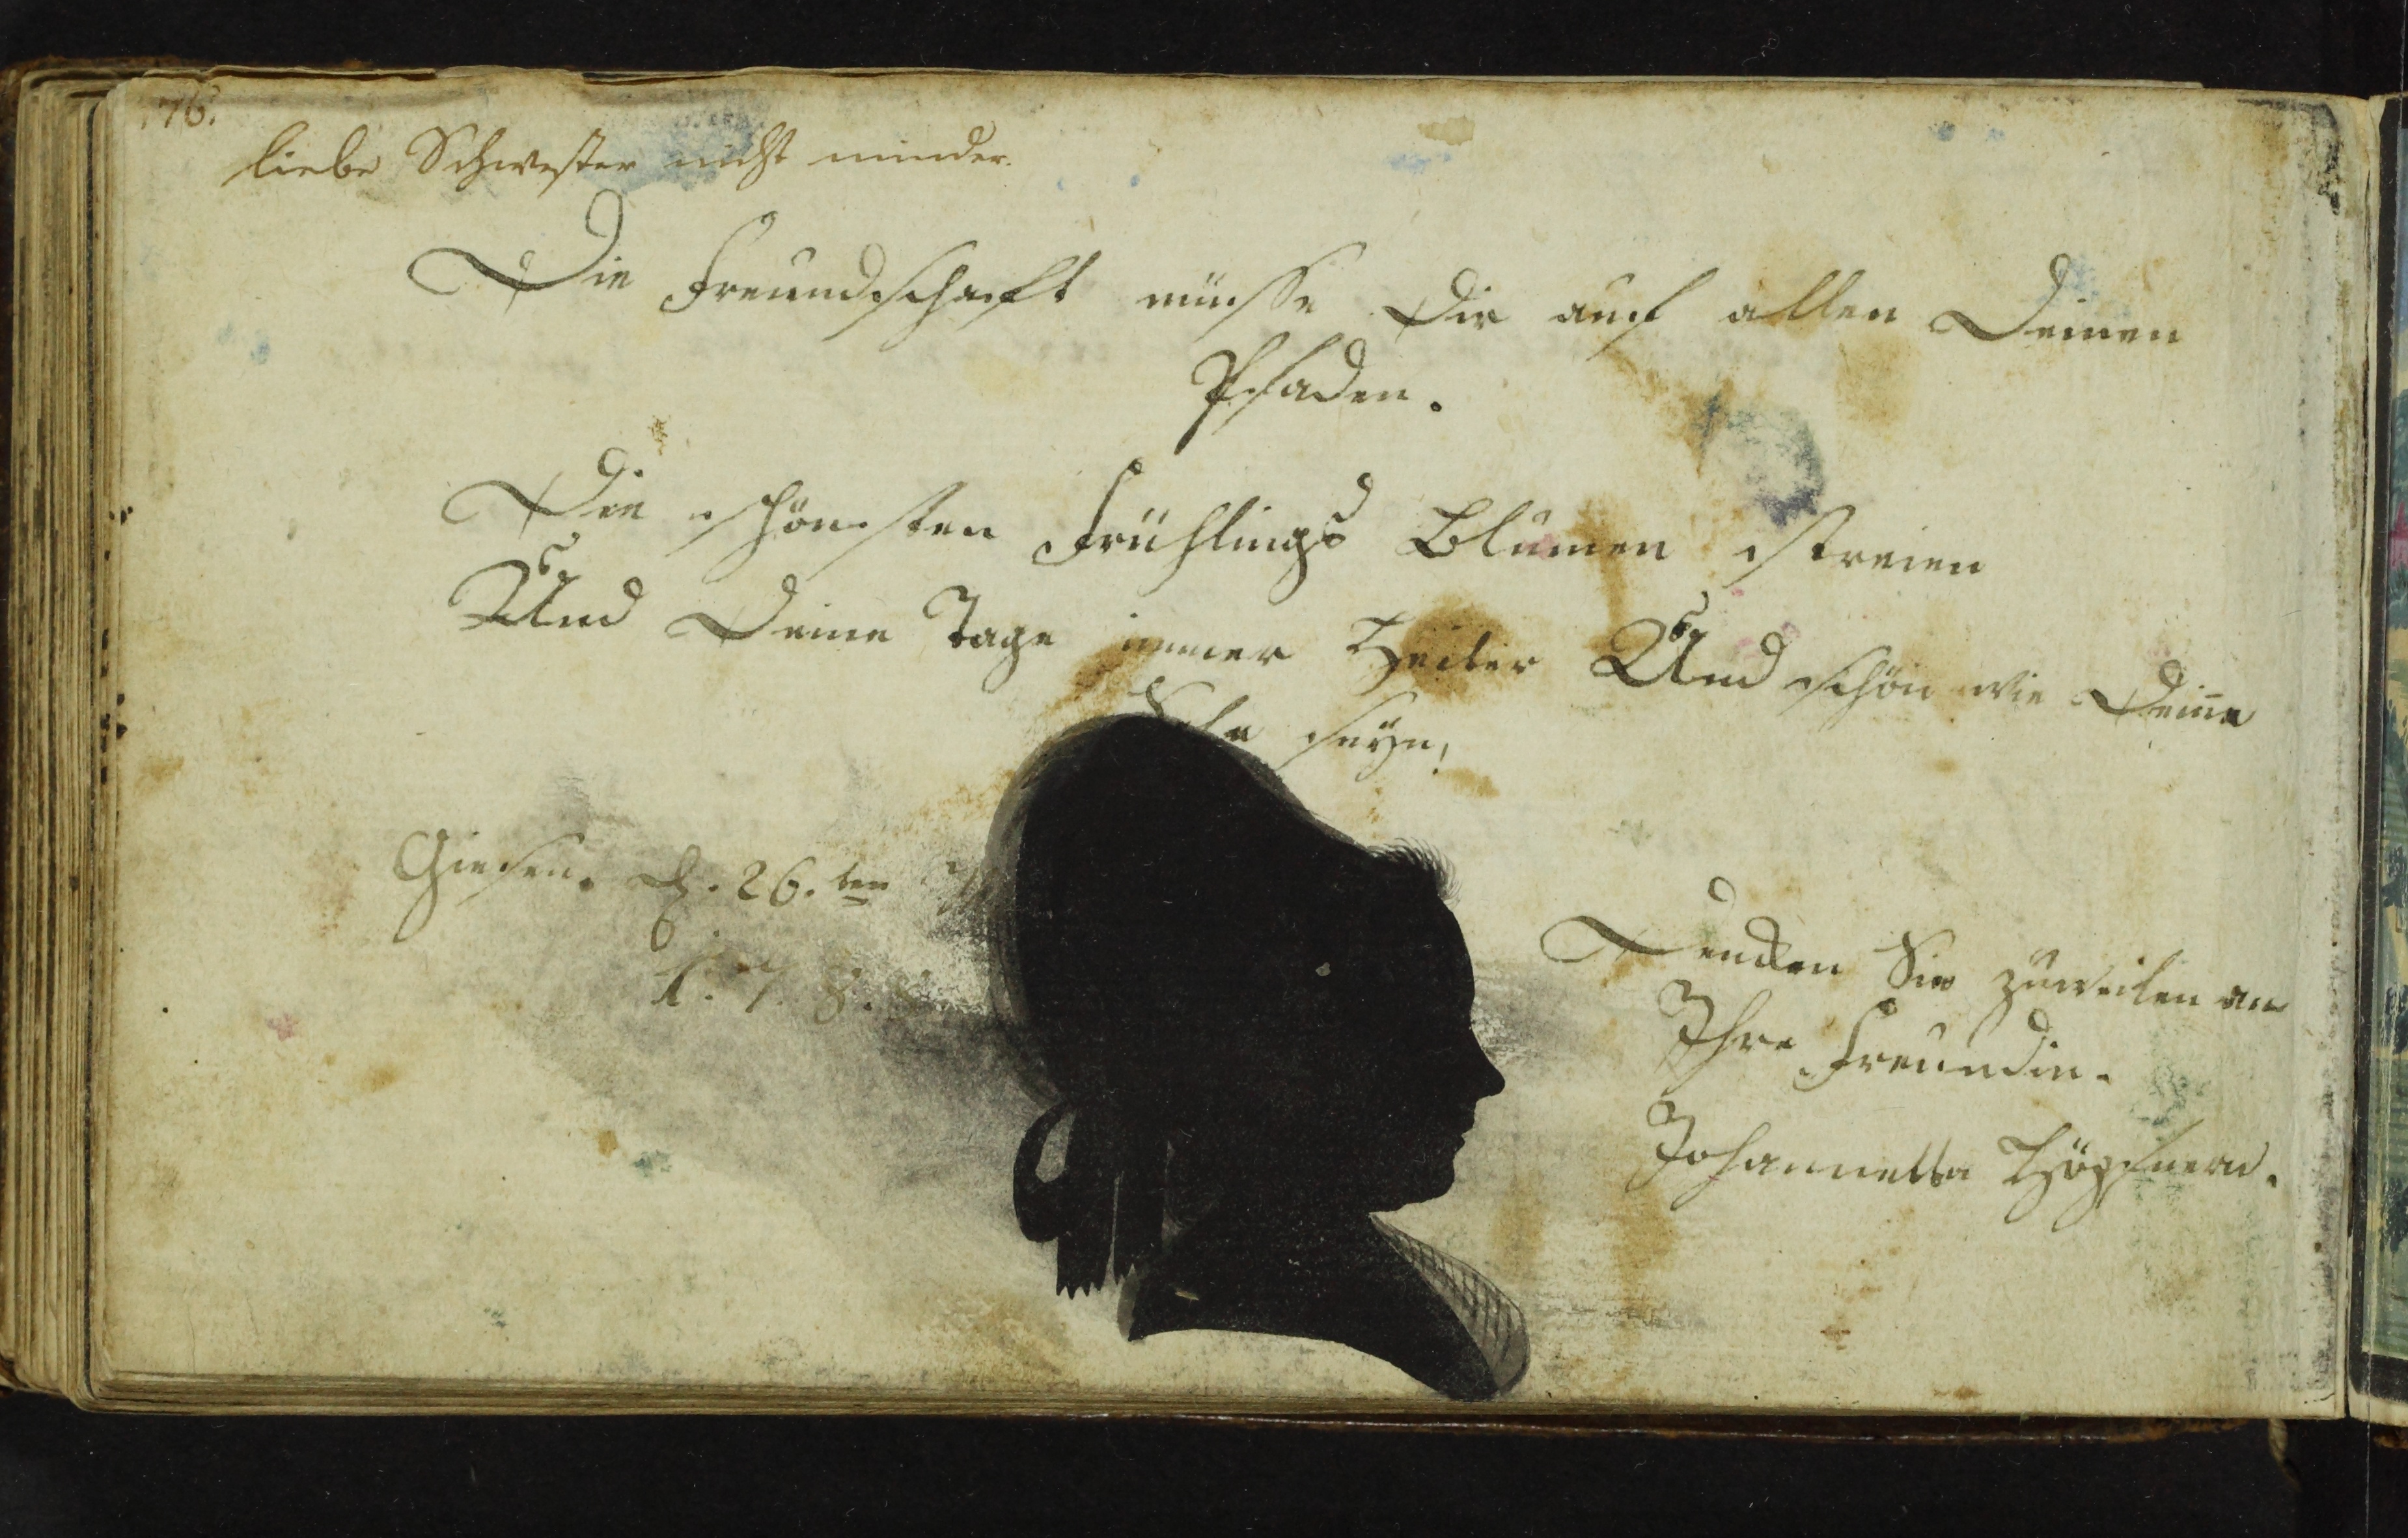 76.
liebe Schwester nicht minder.
Die Freundschaft müsse Dir auf allen Deinen
Pfaden.
Die schönsten Frühlings Blumen streien
Und Deine Tage immer Heiter Und schön wie Deine
seyn!
Giesen. d. 26. ten
1. 7. 8.
Dencken Sie zuweilen an
Ihre Freundin.
Johannetta Höpfnern.